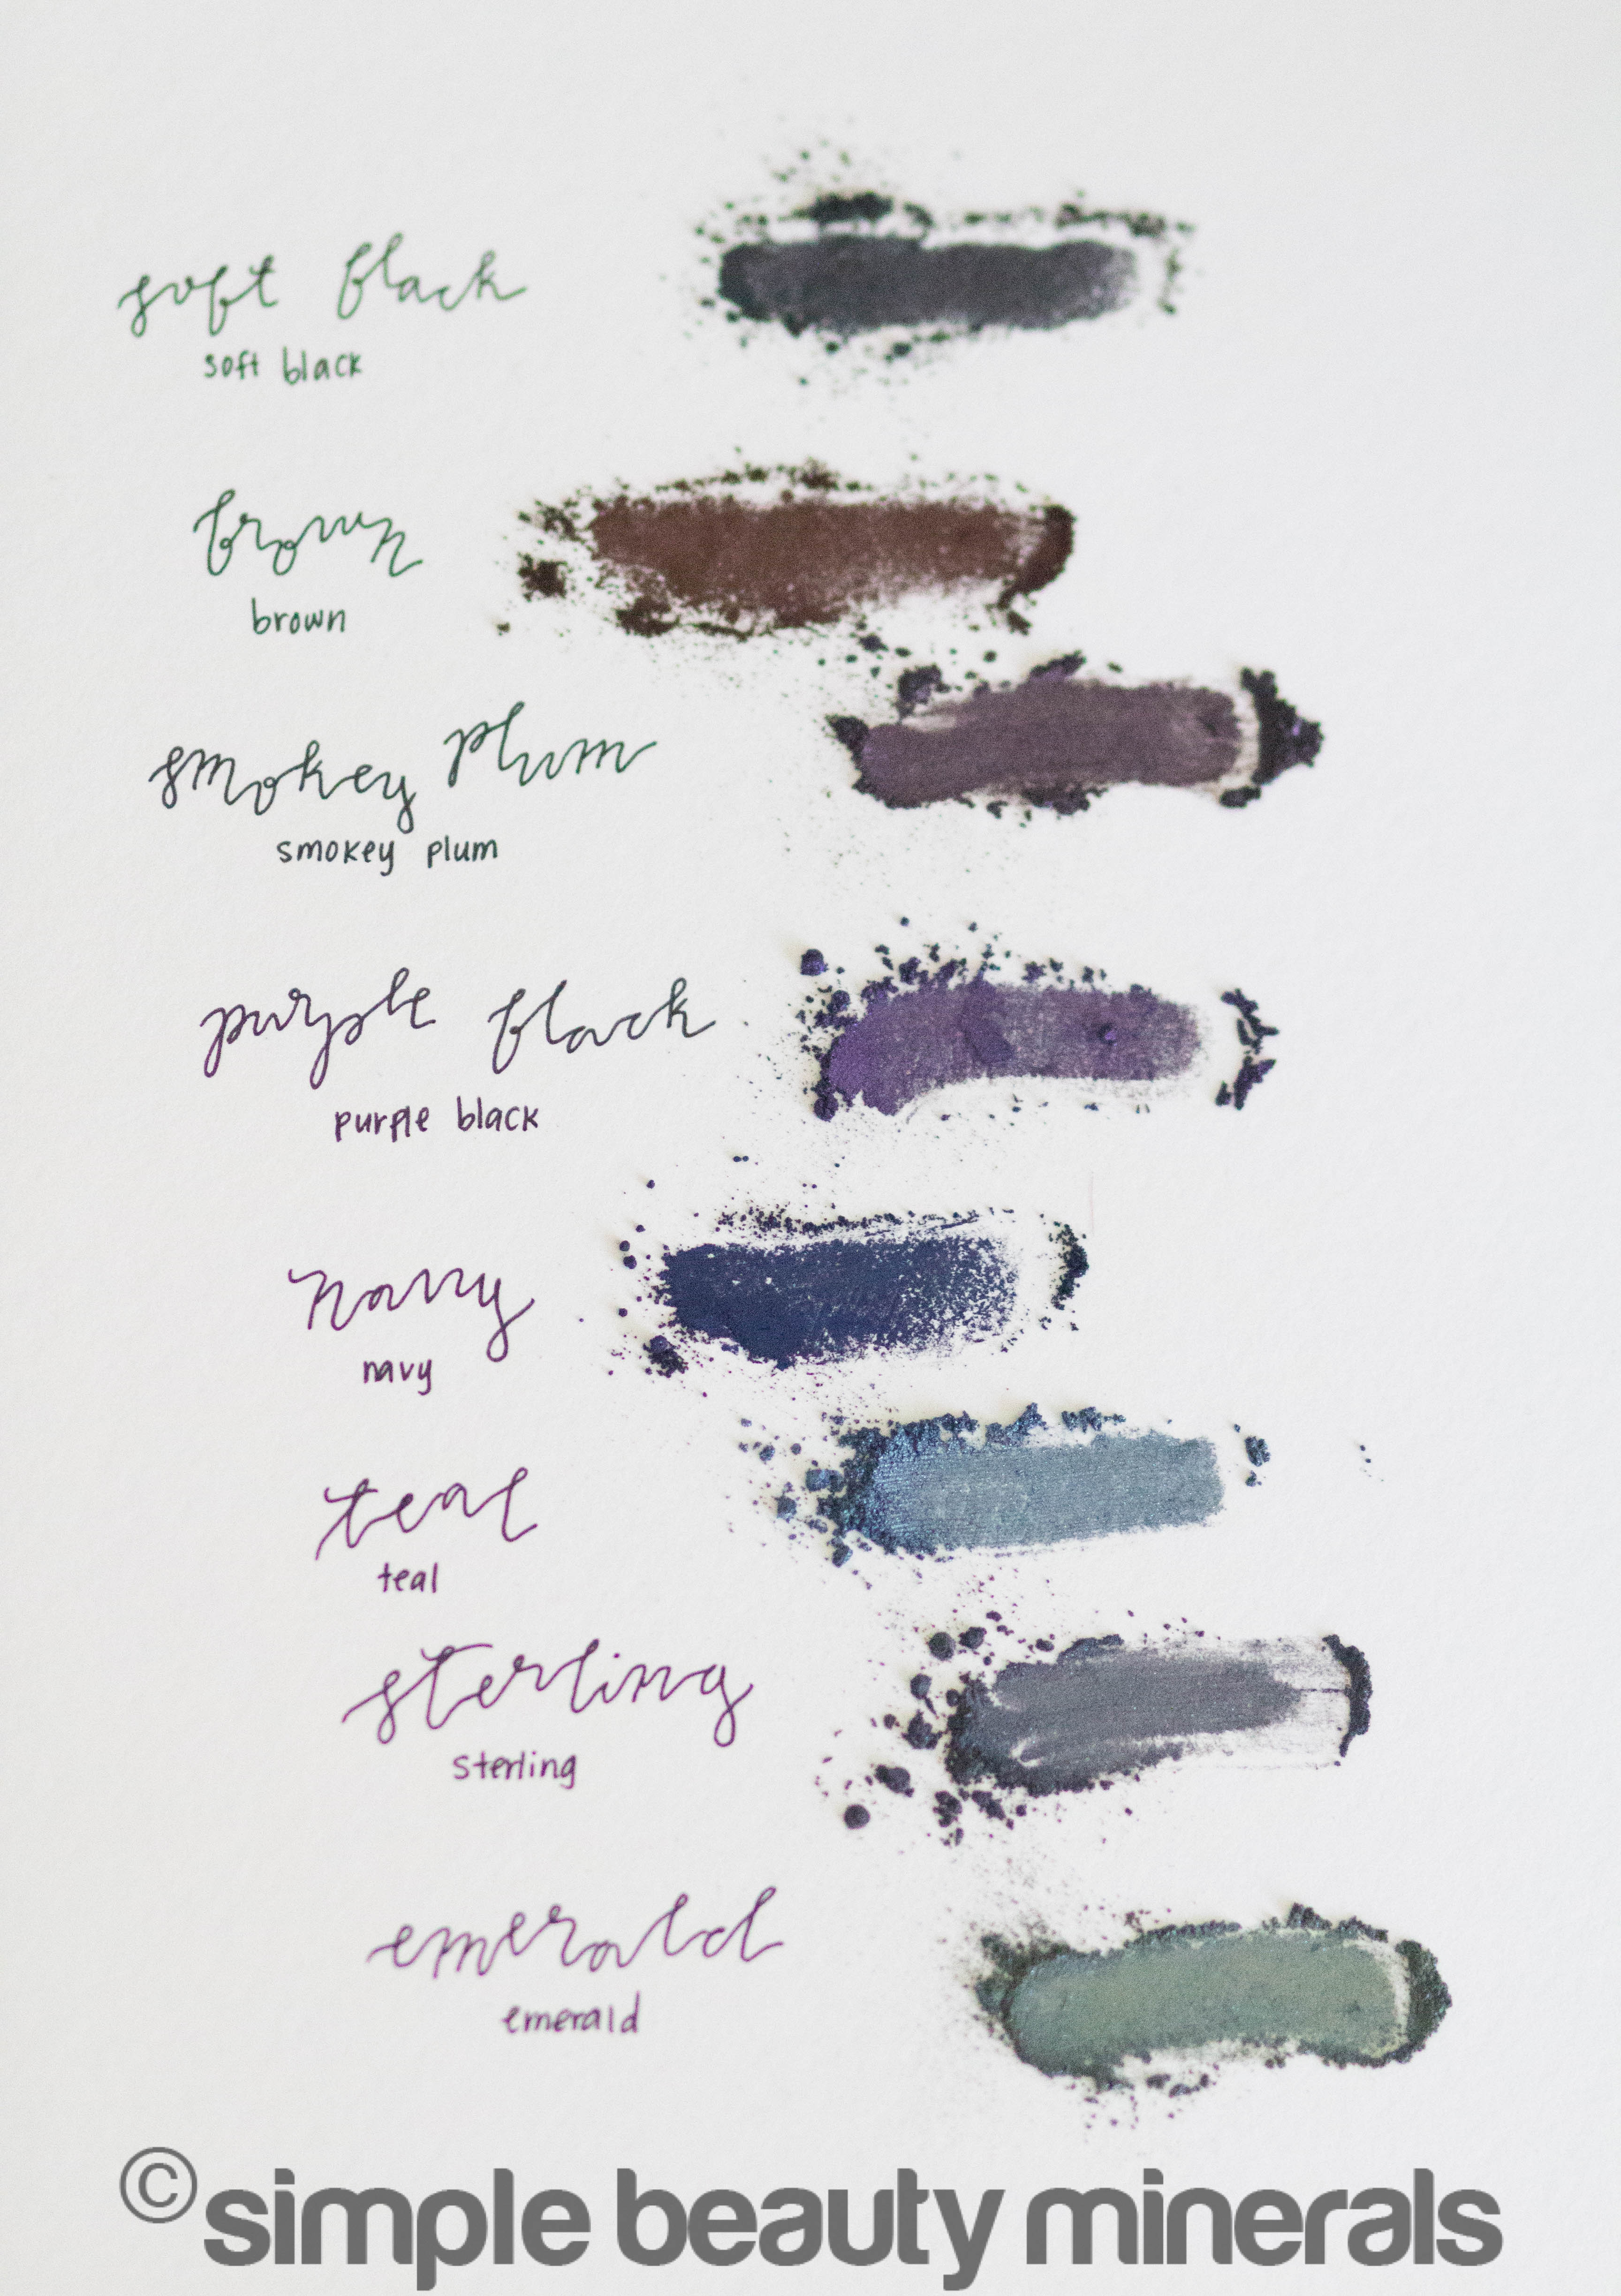 soft black
soft black
brown
brown
smokey plum
smokey plum
purple black
purple black
navy
navy
teal
teal
sterling
sterling
emerald
emerald
©simple beauty minerals